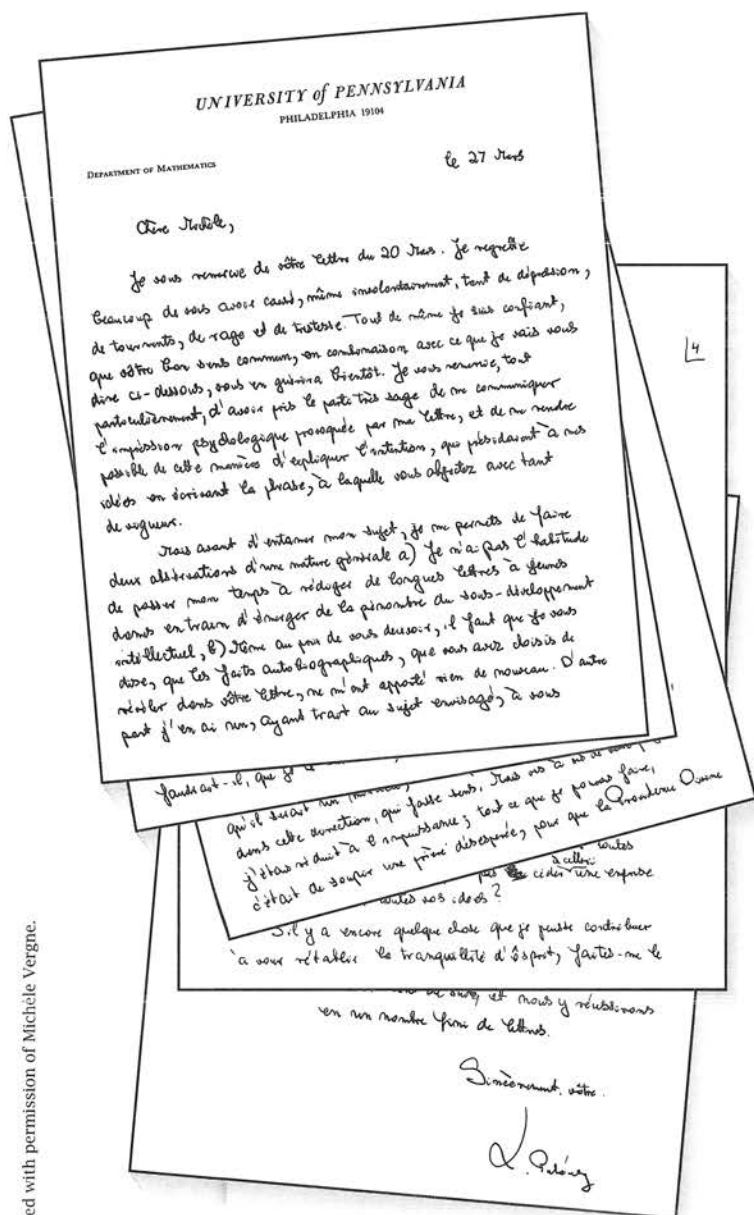 UNIVERSITY of PENNSYLVANIA
PHILADELPHIA 19104
DEPARTMENT OF MATHEMATICS
le 27 Mars
Chère Michèle,
Je vous remercie de vôtre lettre du 20 Mars. Je regrette
beaucoup de vous avoir causé, même involontairement, tant de dépression,
de tourments, de rage et de tristesse. Tout de même je suis confiant,
que vôtre bon sens commun, en combinaison avec ce que je vais vous
dire ci-dessous, vous en guérira bientôt. Je vous remercie, tout
particulièrement, d'avoir pris le parti très sage de me communiquer
l'impression psychologique provoquée par ma lettre, et de me rendre
possible de cette manière d'expliquer l'intention, qui présidaient à mes
idées en écrivant la phrase, à laquelle vous objectez avec tant
de vigueur.
Mais avant d'entamer mon sujet, je me permets de faire
deux observations d'une nature générale a) Je n'ai pas l'habitude
de passer mon temps à rédiger de longues lettres à jeunes
dames en train d'émerger de la pénombre du sous-développement
intellectuel, b) Même au prix de vous decevoir, il faut que je vous
dise, que les faits autobiographiques, que vous avez choisis de
révéler dans vôtre lettre, ne m'ont apporté rien de nouveau. D'autre
part j'en ai un, ayant trait au sujet envisagé, à vous
4
faudrait-il, que je
qu'il serait un
dans cette direction, qui fasse sens. Mais vis à vis de
j'étais réduit à l'impuissance; tout ce que je pouvais faire,
c'était de soupir une prière désespérée, pour que la Providence Divine
toutes
pas céder à celle une emprise
toutes vos idées?
S'il y a encore quelque chose que je puisse contribuer
à vous rétablir la tranquillité d'ésprit, faites-me le
et nous y réussirons
en un nombre fini de lettres.
Sincèrement vôtre.
L. Pukánszky
ed with permission of Michèle Vergne.